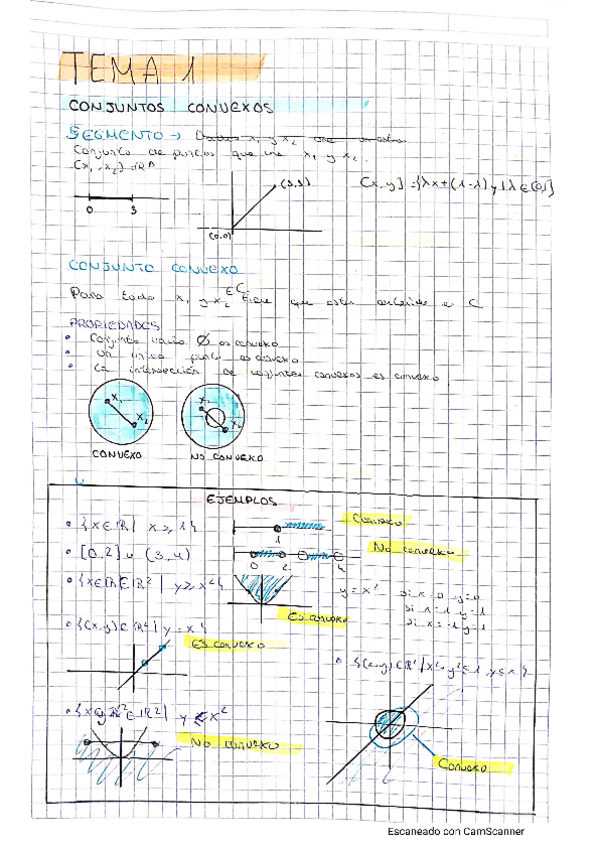 TEMA 1
CONJUNTOS CONVEXOS
SEGMENTO →
Conjunto de puntos que une x₁ y x₂.
0 3
(3,3)
(0,0)
[x,y] = {λx + (1-λ)y | λ ∈ [0,1]}
CONJUNTO CONVEXO
Para todo x₁ y x₂ ∈ C tiene que estar contenido C
PROPIEDADES
• Conjunto vacío Ø es convexo
• Un único punto es convexo
• La intersección de conjuntos convexos es convexo
x₁ x₂
CONVEXO
x₁ x₂
NO CONVEXO
EJEMPLOS
• {x∈ℝ | x ≥ 1}
1
Convexo
• [0,2] ∪ (3,4)
0 2 4
No convexo
ℝ² | y ≥ x²}
Es convexo
y = x²
si x=0 y=0
si x=1 y=1
si x=-1 y=1
• {(x,y) ∈ ℝ² | y = x}
Es convexo
• {(x,y) ∈ ℝ² | x²+y² ≤ 1 y ≤ x}
Convexo
ℝ² | y ≤ x²
No convexo
Escaneado con CamScanner